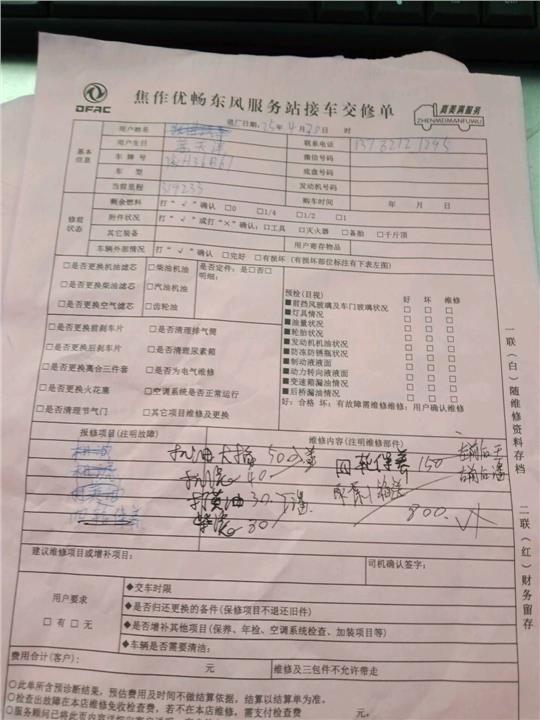 DFAC
焦作优畅东风服务站接车交修单
真美满服务
ZHENMEIMANFUWU
进厂日期: 25年4月20日 时
基本信息
用户姓名
用户生日 联系电话
车牌号 微信号码
车型 底盘号
当前里程 319233 发动机号码
修前状态
剩余燃料 打“√”确认 □0 □1/4 □1/2 □1 购车时间 年 月 日
附件状况 打“√”或打“×”确认: □工具 □灭火器 □备胎 □千斤顶
其它装备 用户寄存物品
车辆外部情况 打“√”确认 □完好 □有损坏 (有损坏部位标注有下表左图)
□是否更换机油滤芯 □柴油机油 是否定件: 是□否□
□是否更换柴油滤芯 □汽油机油 明细:
□是否更换空气滤芯 □齿轮油
□是否更换前刹车片 □是否清理排气筒
□是否更换后刹车片 □是否清理尿素箱
□是否更换离合三件套 □是否为电气维修
□是否更换火花塞 □空调系统是否正常运行
□是否清理节气门 □其它项目维修及更换
预检(目视) 好 坏 维修
■前挡风玻璃及车门玻璃状况 □ □ □
■灯具情况 □ □ □
■油量状况 □ □ □
■轮胎状况 □ □ □
■发动机机油状况 □ □ □
■防冻防锈瓶状况 □ □ □
■制动液液面 □ □ □
■动力转向液液面 □ □ □
■变速箱漏油情况 □ □ □
■后桥漏油情况 □ □ □
好: 合格 坏: 有故障需维修维修: 用户确认维修
报修项目(注明故障) 维修内容(注明维修部件)
机油大桶 500 四轮保养 150
机滤 40
打黄油 30
柴滤 80 800
建议维修项目或增补项目: 司机确认签字:
用户要求
□有 □无
◆交车时限
◆是否归还更换的备件(保修项目不退还旧件)
◆是否增补其他项目(保养、年检、空调系统检查、加装项目等)
◆车辆是否需要清洁:
费用合计(客户): 元 维修及三包件不允许带走
○此单所含预诊断结果, 预估费用及时间不做结算依据, 结算以结算单为准。
○检查出故障在本店维修免收检查费, 若不在本店维修, 需支付检查费 元。
一联(白)随维修资料存档
二联(红)财务留存